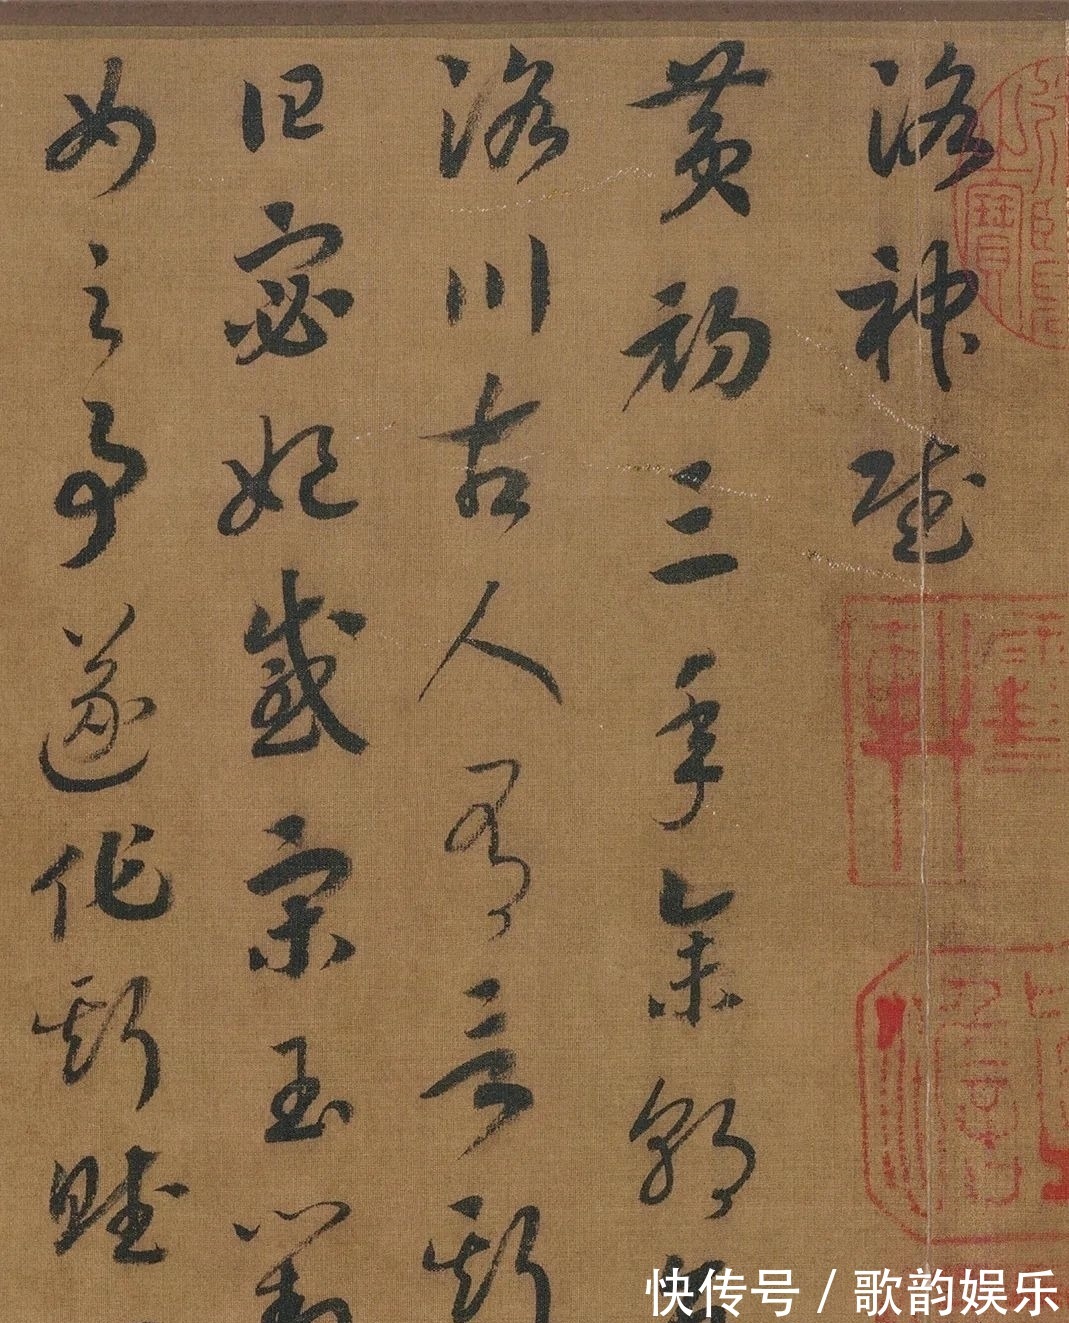 洛神賦
黄初三年余朝京
洛川古人有言斯
曰宓妃感宋玉對
女之事遂作斯賦
快传号 / 歌韵娱乐